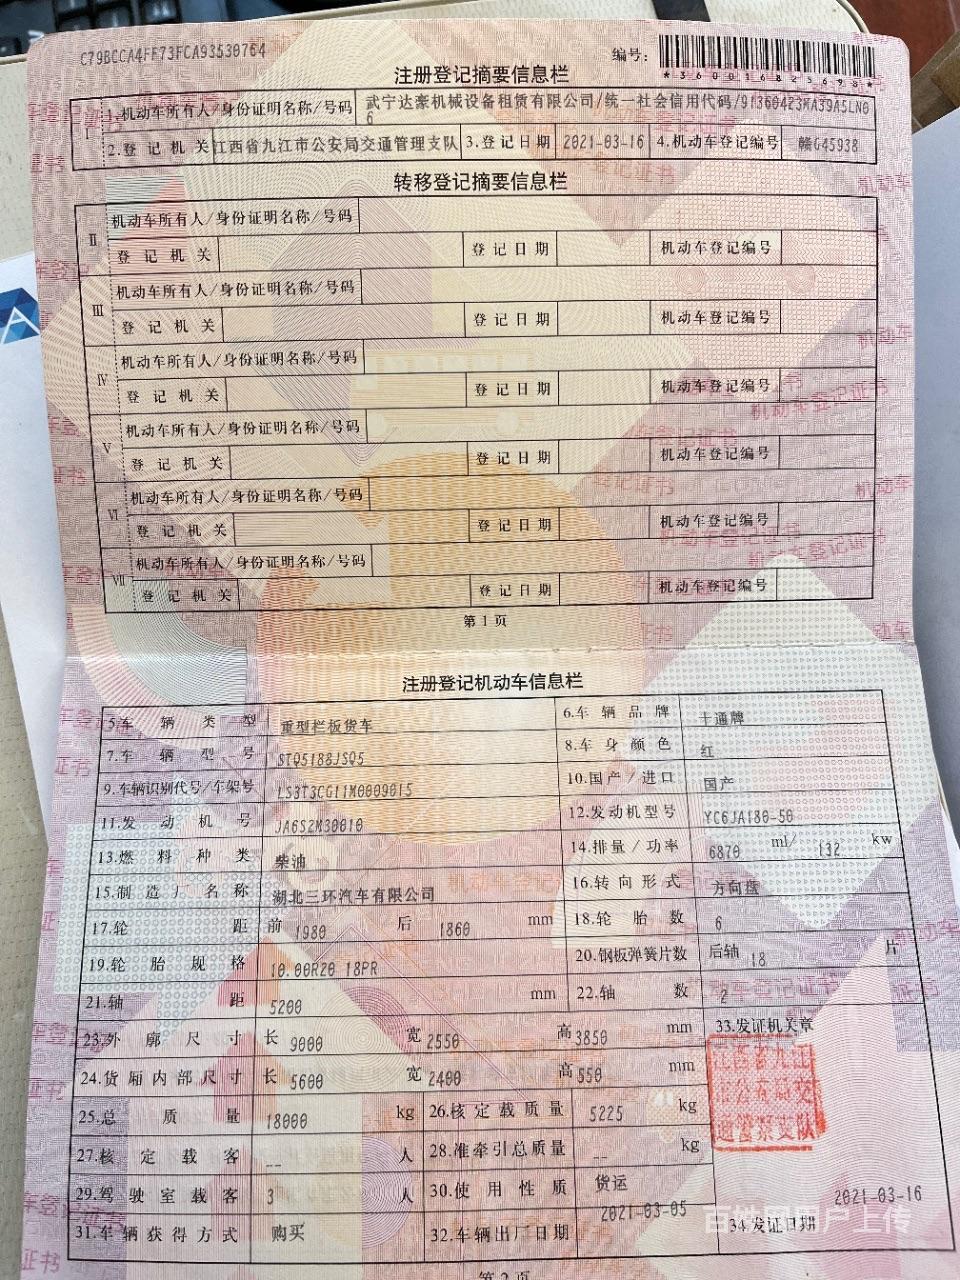 C79BCCA4FF73FCA93530764
编号:
*360016825698*
注册登记摘要信息栏
I
1.机动车所有人/身份证明名称/号码 武宁达豪机械设备租赁有限公司/统一社会信用代码/91360423MA39A5LN0
6
2.登记机关 江西省九江市公安局交通管理支队 3.登记日期 2021-03-16 4.机动车登记编号 赣G45938
转移登记摘要信息栏
II
机动车所有人/身份证明名称/号码
登记机关 登记日期 机动车登记编号
III
机动车所有人/身份证明名称/号码
登记机关 登记日期 机动车登记编号
IV
机动车所有人/身份证明名称/号码
登记机关 登记日期 机动车登记编号
V
机动车所有人/身份证明名称/号码
登记机关 登记日期 机动车登记编号
VI
机动车所有人/身份证明名称/号码
登记机关 登记日期 机动车登记编号
VII
机动车所有人/身份证明名称/号码
登记机关 登记日期 机动车登记编号
第1页
注册登记机动车信息栏
5.车辆类型 重型栏板货车 6.车辆品牌 十通牌
7.车辆型号 STQ5188JSQ5 8.车身颜色 红
9.车辆识别代号/车架号 LS3T3CG11M0009015 10.国产/进口 国产
11.发动机号 JA6S2M30010 12.发动机型号 YC6JA180-50
13.燃料种类 柴油 14.排量/功率 6870 ml/ 132 kw
15.制造厂名称 湖北三环汽车有限公司 16.转向形式 方向盘
17.轮距 前 1980 后 1860 mm 18.轮胎数 6
19.轮胎规格 10.00R20 18PR 20.钢板弹簧片数 后轴 18 片
21.轴距 5200 mm 22.轴数 2
23.外廓尺寸 长 9000 宽 2550 高 3850 mm 33.发证机关章
24.货厢内部尺寸 长 5600 宽 2400 高 550 mm
江西省九江
市公安局交
通警察支队
25.总质量 18000 kg 26.核定载质量 5225 kg
27.核定载客 -- 人 28.准牵引总质量 -- kg
29.驾驶室载客 3 人 30.使用性质 货运
31.车辆获得方式 购买 32.车辆出厂日期 2021-03-05 34.发证日期 2021-03-16
百姓网用户上传
第2页